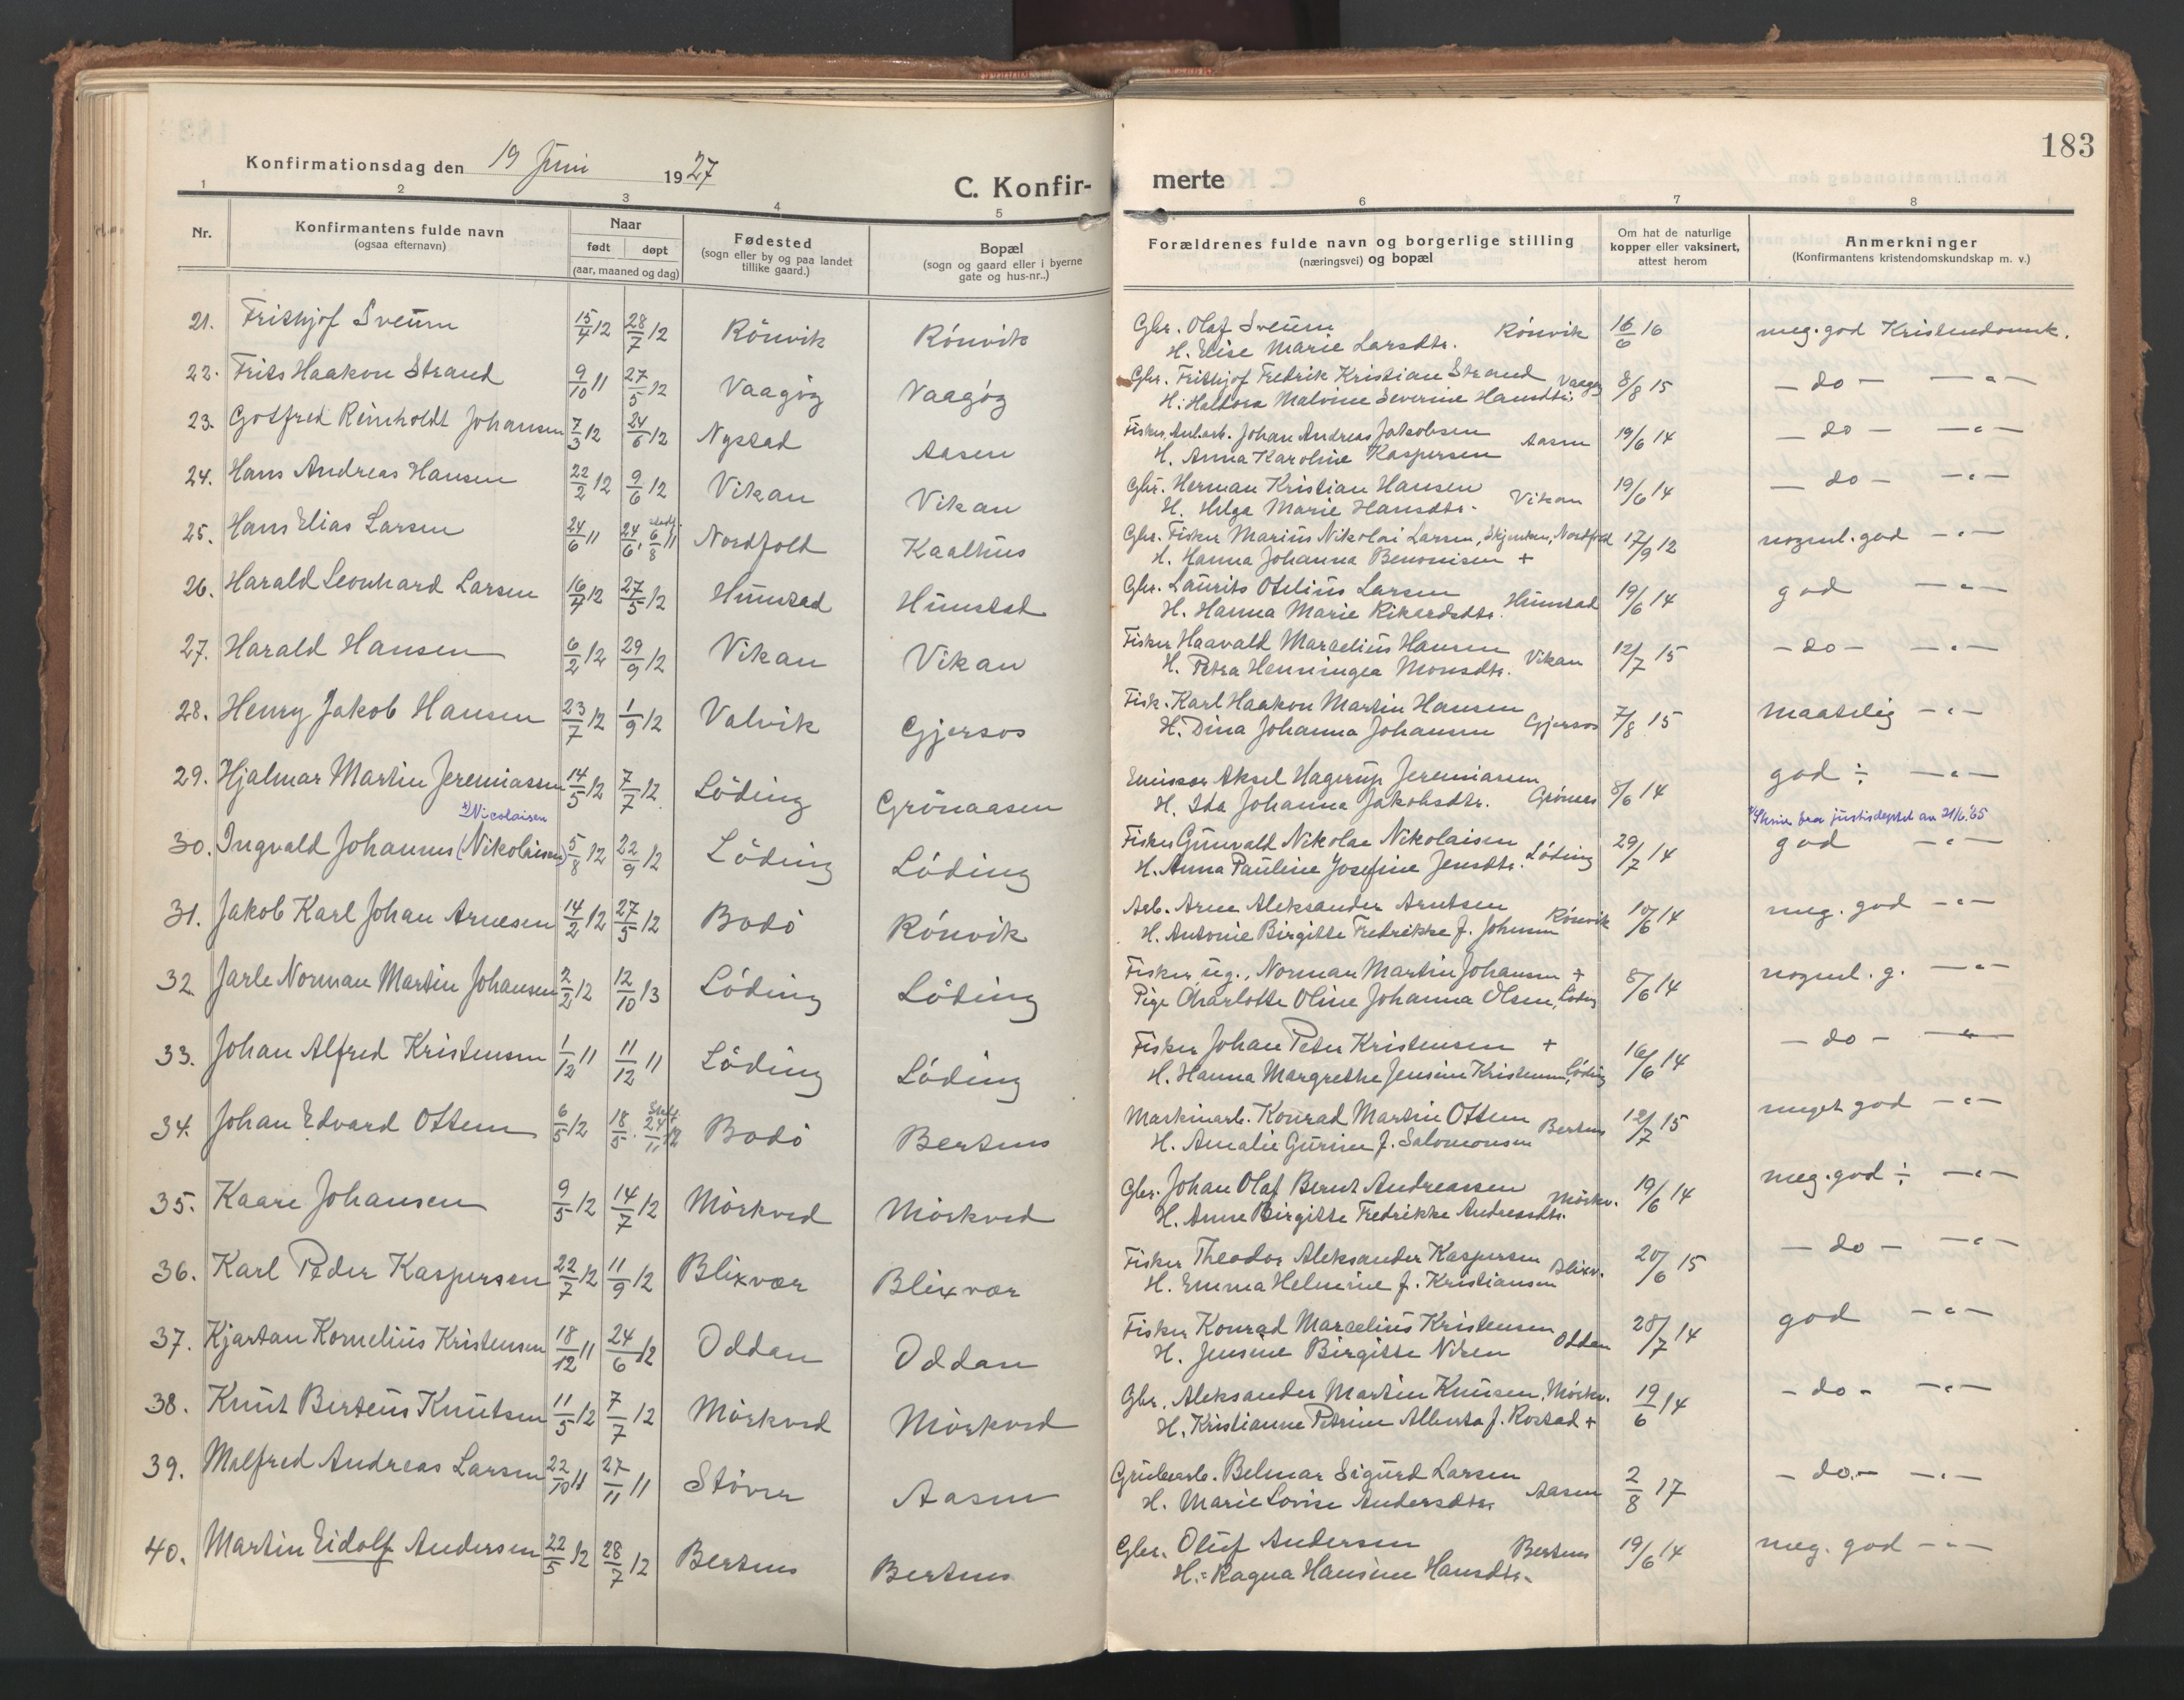 183
Konfirmationsdag den 19 Juni 1927
C. Konfir-
merte
1 2 3 4 5 6 7 8
Nr.
Konfirmantens fulde navn
(ogsaa efternavn)
Naar
født døpt
(aar, maaned og dag)
Fødested
(sogn eller by og paa landet
tillike gaard.)
Bopæl
(sogn og gaard eller i byerne
gate og hus-nr..)
Forældrenes fulde navn og borgerlige stilling
(næringsvei) og bopæl
Om hat de naturlige
kopper eller vaksinert,
attest herom
Anmerkninger
(Konfirmantens kristendomskundskap m. v.)
21. Frithjof Sveum 15/4 12 28/7 12 Rönvik Rónvik Gbr. Olaf Sveum Rónvik 16/6 16 meg. god Kristendomsk.
H. Elise Marie Larsdtr.
22. Frits Haakon Strand 9/10 11 27/5 12 Vaagöy Vaagöy Gbr. Frithjof Fredrik Kristian Strand Vaagöy 8/8 15 - do - - " -
H. Haldora Malvine Severine Hansdtr.
23. Gotfred Reinholdt Johansen 7/3 12 24/6 12 Nystad Aasen Fisker, Anl.arb. Johan Andreas Jakobsen Aasen 19/6 14 - do - - " -
H. Anna Karoline Kaspersen
24. Hans Andreas Hansen 22/2 12 9/6 12 Vikan Vikan Gbr. Herman Kristian Hansen Vikan 19/6 14 - do - - " -
H. Helga Marie Hansdtr.
25. Hans Elias Larsen 24/6 11 24/6, stadf. 6/8 11 Nordfold Kaalhus Gbr. Fisker Marius Nikolai Larsen, Nordfold 17/9 12 nogenl. god - " -
H. Hanna Johanna Benonisen +
26. Harald Leonhard Larsen 16/4 12 27/5 12 Hunstad Hunstad Gbr. Laurits Otelius Larsen Hunstad 19/6 14 god - " -
H. Hanna Marie Rikardsdtr.
27. Harald Hansen 6/2 12 29/9 12 Vikan Vikan Fisker Haavald Marcelius Hansen Vikan 12/7 15 - do - - " -
H. Petra Henningea Monsdtr.
28. Henry Jakob Hansen 23/7 12 1/9 12 Valvik Gjersos Fisk. Karl Haakon Martin Hansen Gjersos 7/8 15 maatelig - " -
H. Dina Johanna Johansen
29. Hjalmar Martin Jeremiassen 14/5 12 7/7 12 Löding Grönaasen Emissær Aksel Hagerup Jeremiassen 8/6 14 god ÷ - " -
H. Ida Johanna Jakobsdtr.
x) Nicolaisen
x) Skriv fra justisdeptet av 21/6.65
30. Ingvald Johannes (Nikolaisen) 5/8 12 22/9 12 Löding Löding Fisker Gunvald Nikolae Nikolaisen Löding 29/7 14 god - " -
H. Anna Pauline Josefine Jensdtr.
31. Jakob Karl Johan Arntsen 14/2 12 27/5 12 Bodö Rónvik Arb. Arne Aleksander Arntsen Rónvik 10/6 14 meg. god - " -
H. Antonie Birgitte Fredrikke f. Johnsen
32. Jarle Norman Martin Johansen 2/2 12 12/10 13 Löding Löding Fisker, ug., Norman Martin Johansen + 8/6 14 nogenl. g. - " -
Pige Charlotte Oline Johanna Olsen, Löding
33. Johan Alfred Kristensen 1/12 11 11/12 11 Löding Löding Fisker Johan Peter Kristensen + 16/6 14 - do - - " -
H. Hanna Margrethe Jensine Kristensen, Löding
34. Johan Edvard Ottem 6/5 12 18/5. Stadf. 24/11 12 Bodö Bertnes Maskinarb. Konrad Martin Ottem Bertnes 12/7 15 meget god - " -
H. Amalie Gurine f. Salomonsen
35. Kaare Johansen 9/5 12 14/7 12 Mörkved Mörkved Gbr. Johan Olaf Bernt Andreassen Mörkv. 19/6 14 meg. god ÷ - " -
H. Anne Birgitte Fredrikke Andreasdtr.
36. Karl Peder Kaspersen 22/7 12 11/9 12 Blixvær Blixvær Fisker Theodor Aleksander Kaspersen Blixv. 20/6 15 - do - - " -
H. Emma Helmine f. Kristiansen
37. Kjartan Kornelius Kristensen 18/12 11 24/6 12 Oddan Oddan Fisker Konrad Marcelius Kristensen Oddan 28/7 14 god - " -
H. Jensine Birgitte
38. Knut Berteus Knutsen 11/5 12 7/7 12 Mörkved Mörkved Gbr. Aleksander Martin Knutsen, Mörkv. 19/6 14 - do - - " -
H. Kristianne Petrine Alberta f. Rostad +
39. Malfred Andreas Larsen 22/10 11 27/11 11 Stöver Aasen Grubearb. Belmar Sigurd Larsen Aasen 2/8 17 - do - - " -
H. Marie Lovise Andersdtr.
40. Martin Eidolf Andersen 22/5 12 28/7 12 Bertnes Bertnes Gbr. Oluf Andersen Bertnes 19/6 14 meg. god - " -
H. Ragna Hansine Hansdtr.